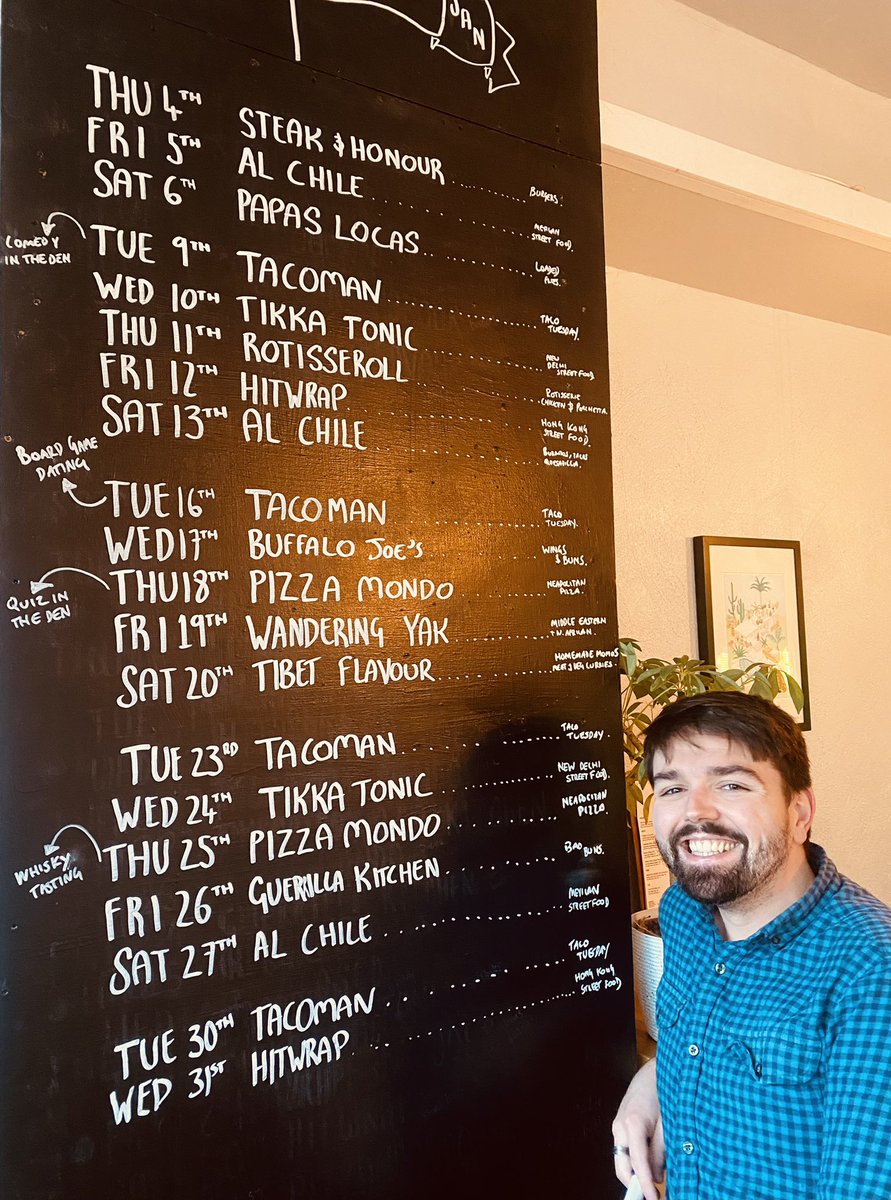 JAN
THU 4TH STEAK & HONOUR ........ BURGERS.
FRI 5TH AL CHILE ........ MEXICAN STREET FOOD.
SAT 6TH PAPAS LOCAS ........ LOADED
COMEDY IN THE DEN
TUE 9TH TACOMAN ........ TACO TUESDAY.
WED 10TH TIKKA TONIC ........ NEW DELHI STREET FOOD.
THU 11TH ROTISSEROLL ........ ROTISSERIE CHICKEN & PORCHETTA.
FRI 12TH HITWRAP ........ HONG KONG STREET FOOD.
SAT 13TH AL CHILE ........ BURRITOS, TACOS
BOARD GAME DATING
TUE 16TH TACOMAN ........ TACO TUESDAY.
WED 17TH BUFFALO JOE'S ........ WINGS & BUNS.
QUIZ IN THE DEN
THU 18TH PIZZA MONDO ........ NEAPOLITAN PIZZA.
FRI 19TH WANDERING YAK ........ MIDDLE EASTERN + N. AFRICAN.
SAT 20TH TIBET FLAVOUR ........ HOMEMADE MOMOS MEAT & VEG CURRIES.
TUE 23RD TACOMAN ........ TACO TUESDAY.
WED 24TH TIKKA TONIC ........ NEW DELHI STREET FOOD.
WHISKY TASTING
THU 25TH PIZZA MONDO ........ NEAPOLITAN PIZZA.
FRI 26TH GUERRILLA KITCHEN ........ BAO BUNS.
SAT 27TH AL CHILE ........ MEXICAN STREET FOOD
TUE 30TH TACOMAN ........ TACO TUESDAY
WED 31ST HITWRAP ........ HONG KONG STREET FOOD